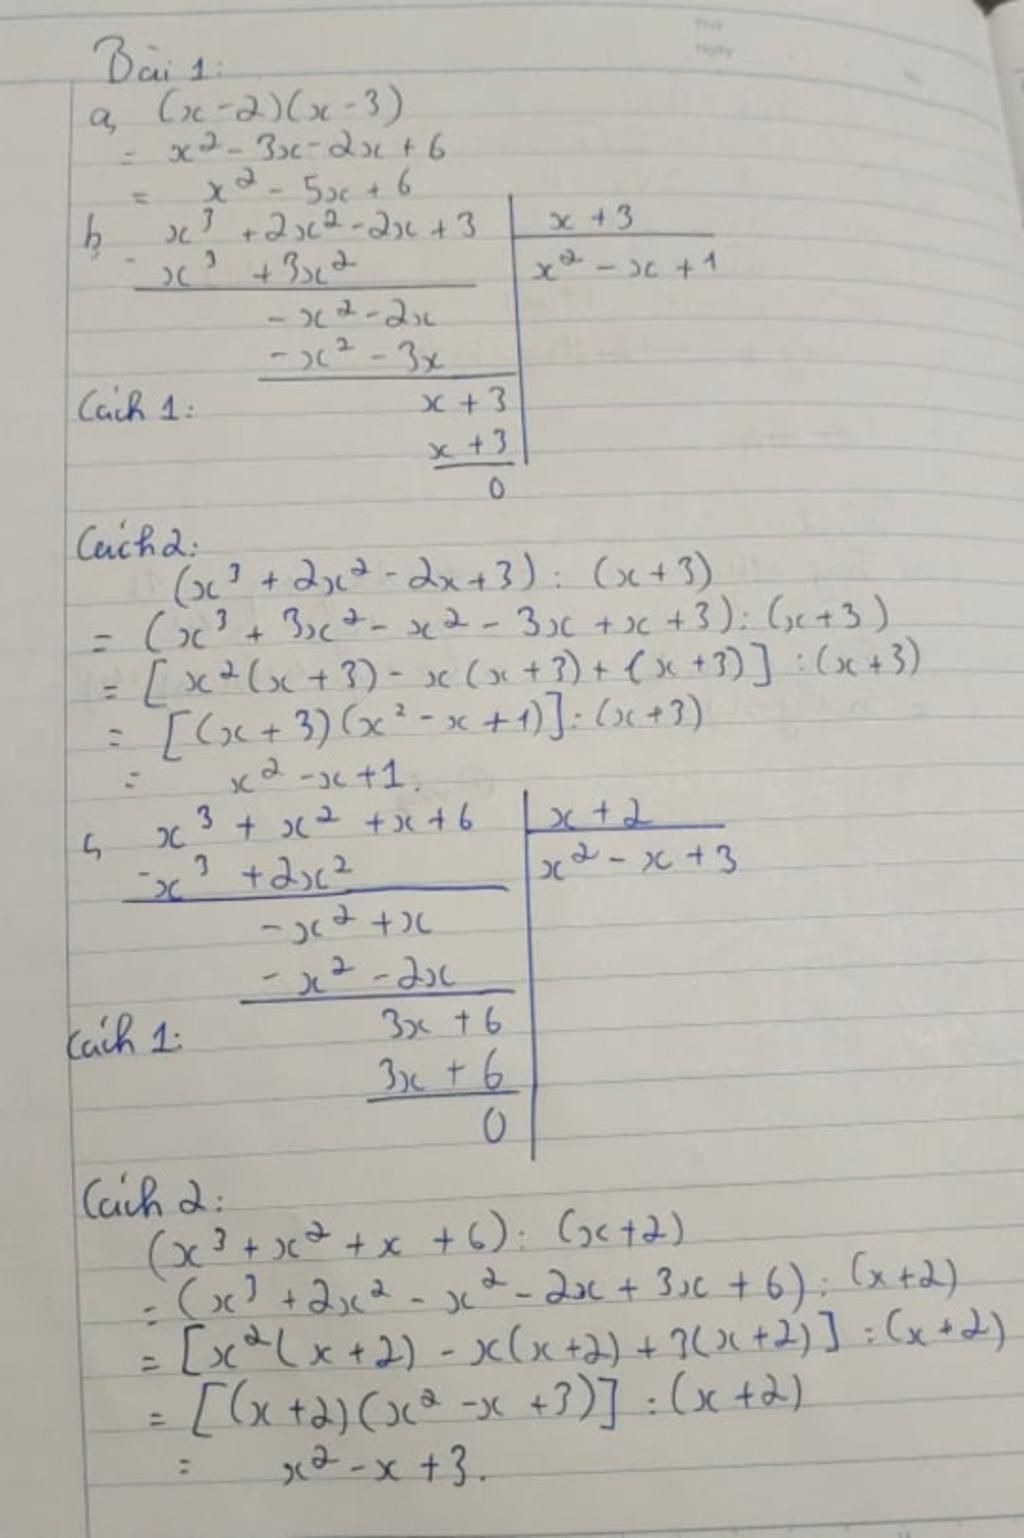 Thứ
Ngày
Bài 1:
a, (x - 2)(x - 3)
= x² - 3x - 2x + 6
= x² - 5x + 6
b, x³ + 2x² - 2x + 3 | x + 3
- x³ + 3x² | x² - x + 1
- x² - 2x
- x² - 3x
Cách 1: x + 3
x + 3
0
Cách 2:
(x³ + 2x² - 2x + 3) : (x + 3)
= (x³ + 3x² - x² - 3x + x + 3) : (x + 3)
= [x²(x + 3) - x(x + 3) + 1(x + 3)] : (x + 3)
= [(x + 3)(x² - x + 1)] : (x + 3)
= x² - x + 1.
c, x³ + x² + x + 6 | x + 2
- x³ + 2x² | x² - x + 3
- x² + x
- x² - 2x
Cách 1: 3x + 6
3x + 6
0
Cách 2:
(x³ + x² + x + 6) : (x + 2)
= (x³ + 2x² - x² - 2x + 3x + 6) : (x + 2)
= [x²(x + 2) - x(x + 2) + 3(x + 2)] : (x + 2)
= [(x + 2)(x² - x + 3)] : (x + 2)
= x² - x + 3.